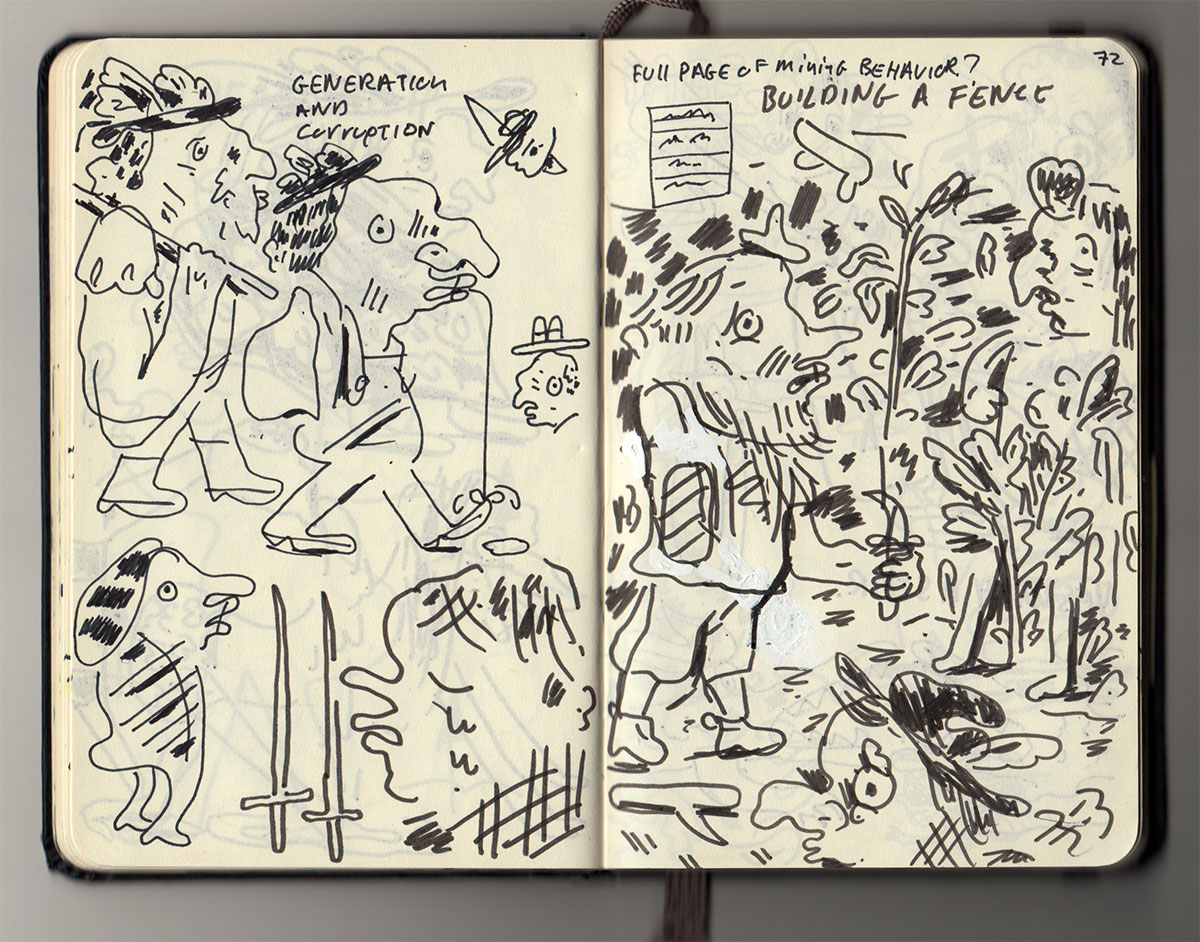 GENERATION
AND
CORRUPTION
72
FULL PAGE OF MINING BEHAVIOR?
BUILDING A FENCE